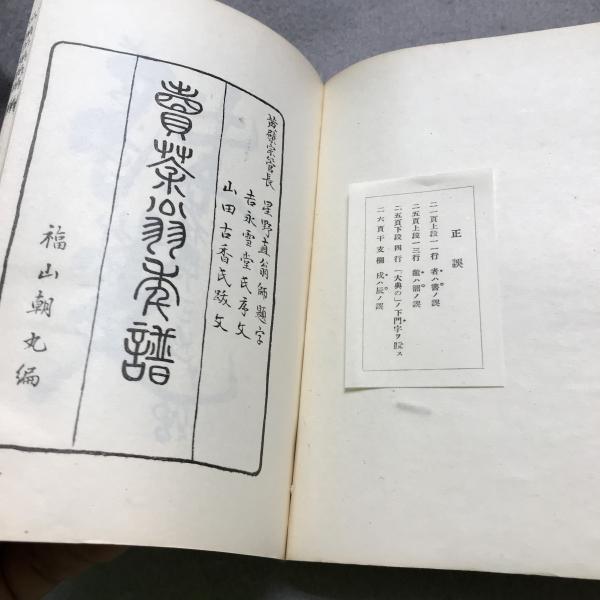 黄檗宗管長 星野直翁師題字
吉永雪堂氏序文
山田古香氏跋文
賣茶翁年譜
福山朝丸編
正誤
二一頁上段一一行 者ハ書ノ誤
二五頁上段一三行
二五頁下段四行 「大典の」ノ下門字ヲ脱ス
二六頁干支欄 戌ハ辰ノ誤